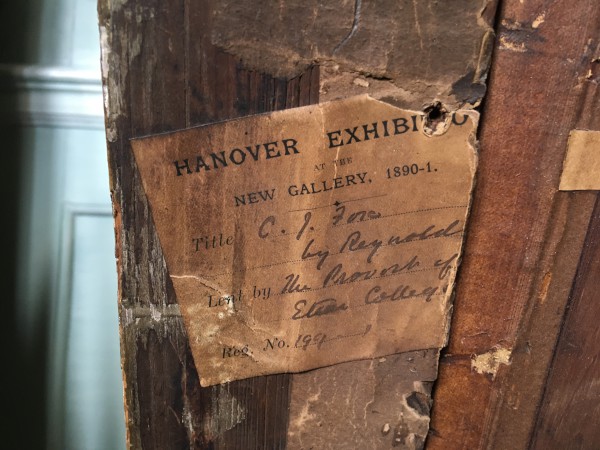 HANOVER EXHIBITIO
AT THE
NEW GALLERY, 1890-1.
Title C. J. Fox
by Reynolds
Lent by The Provost of
Eton College
Reg. No. 199